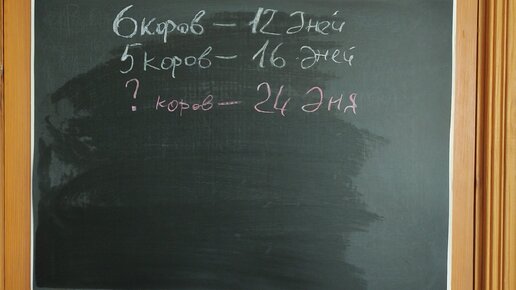 6 коров – 12 дней
5 коров – 16 дней
? коров – 24 дня